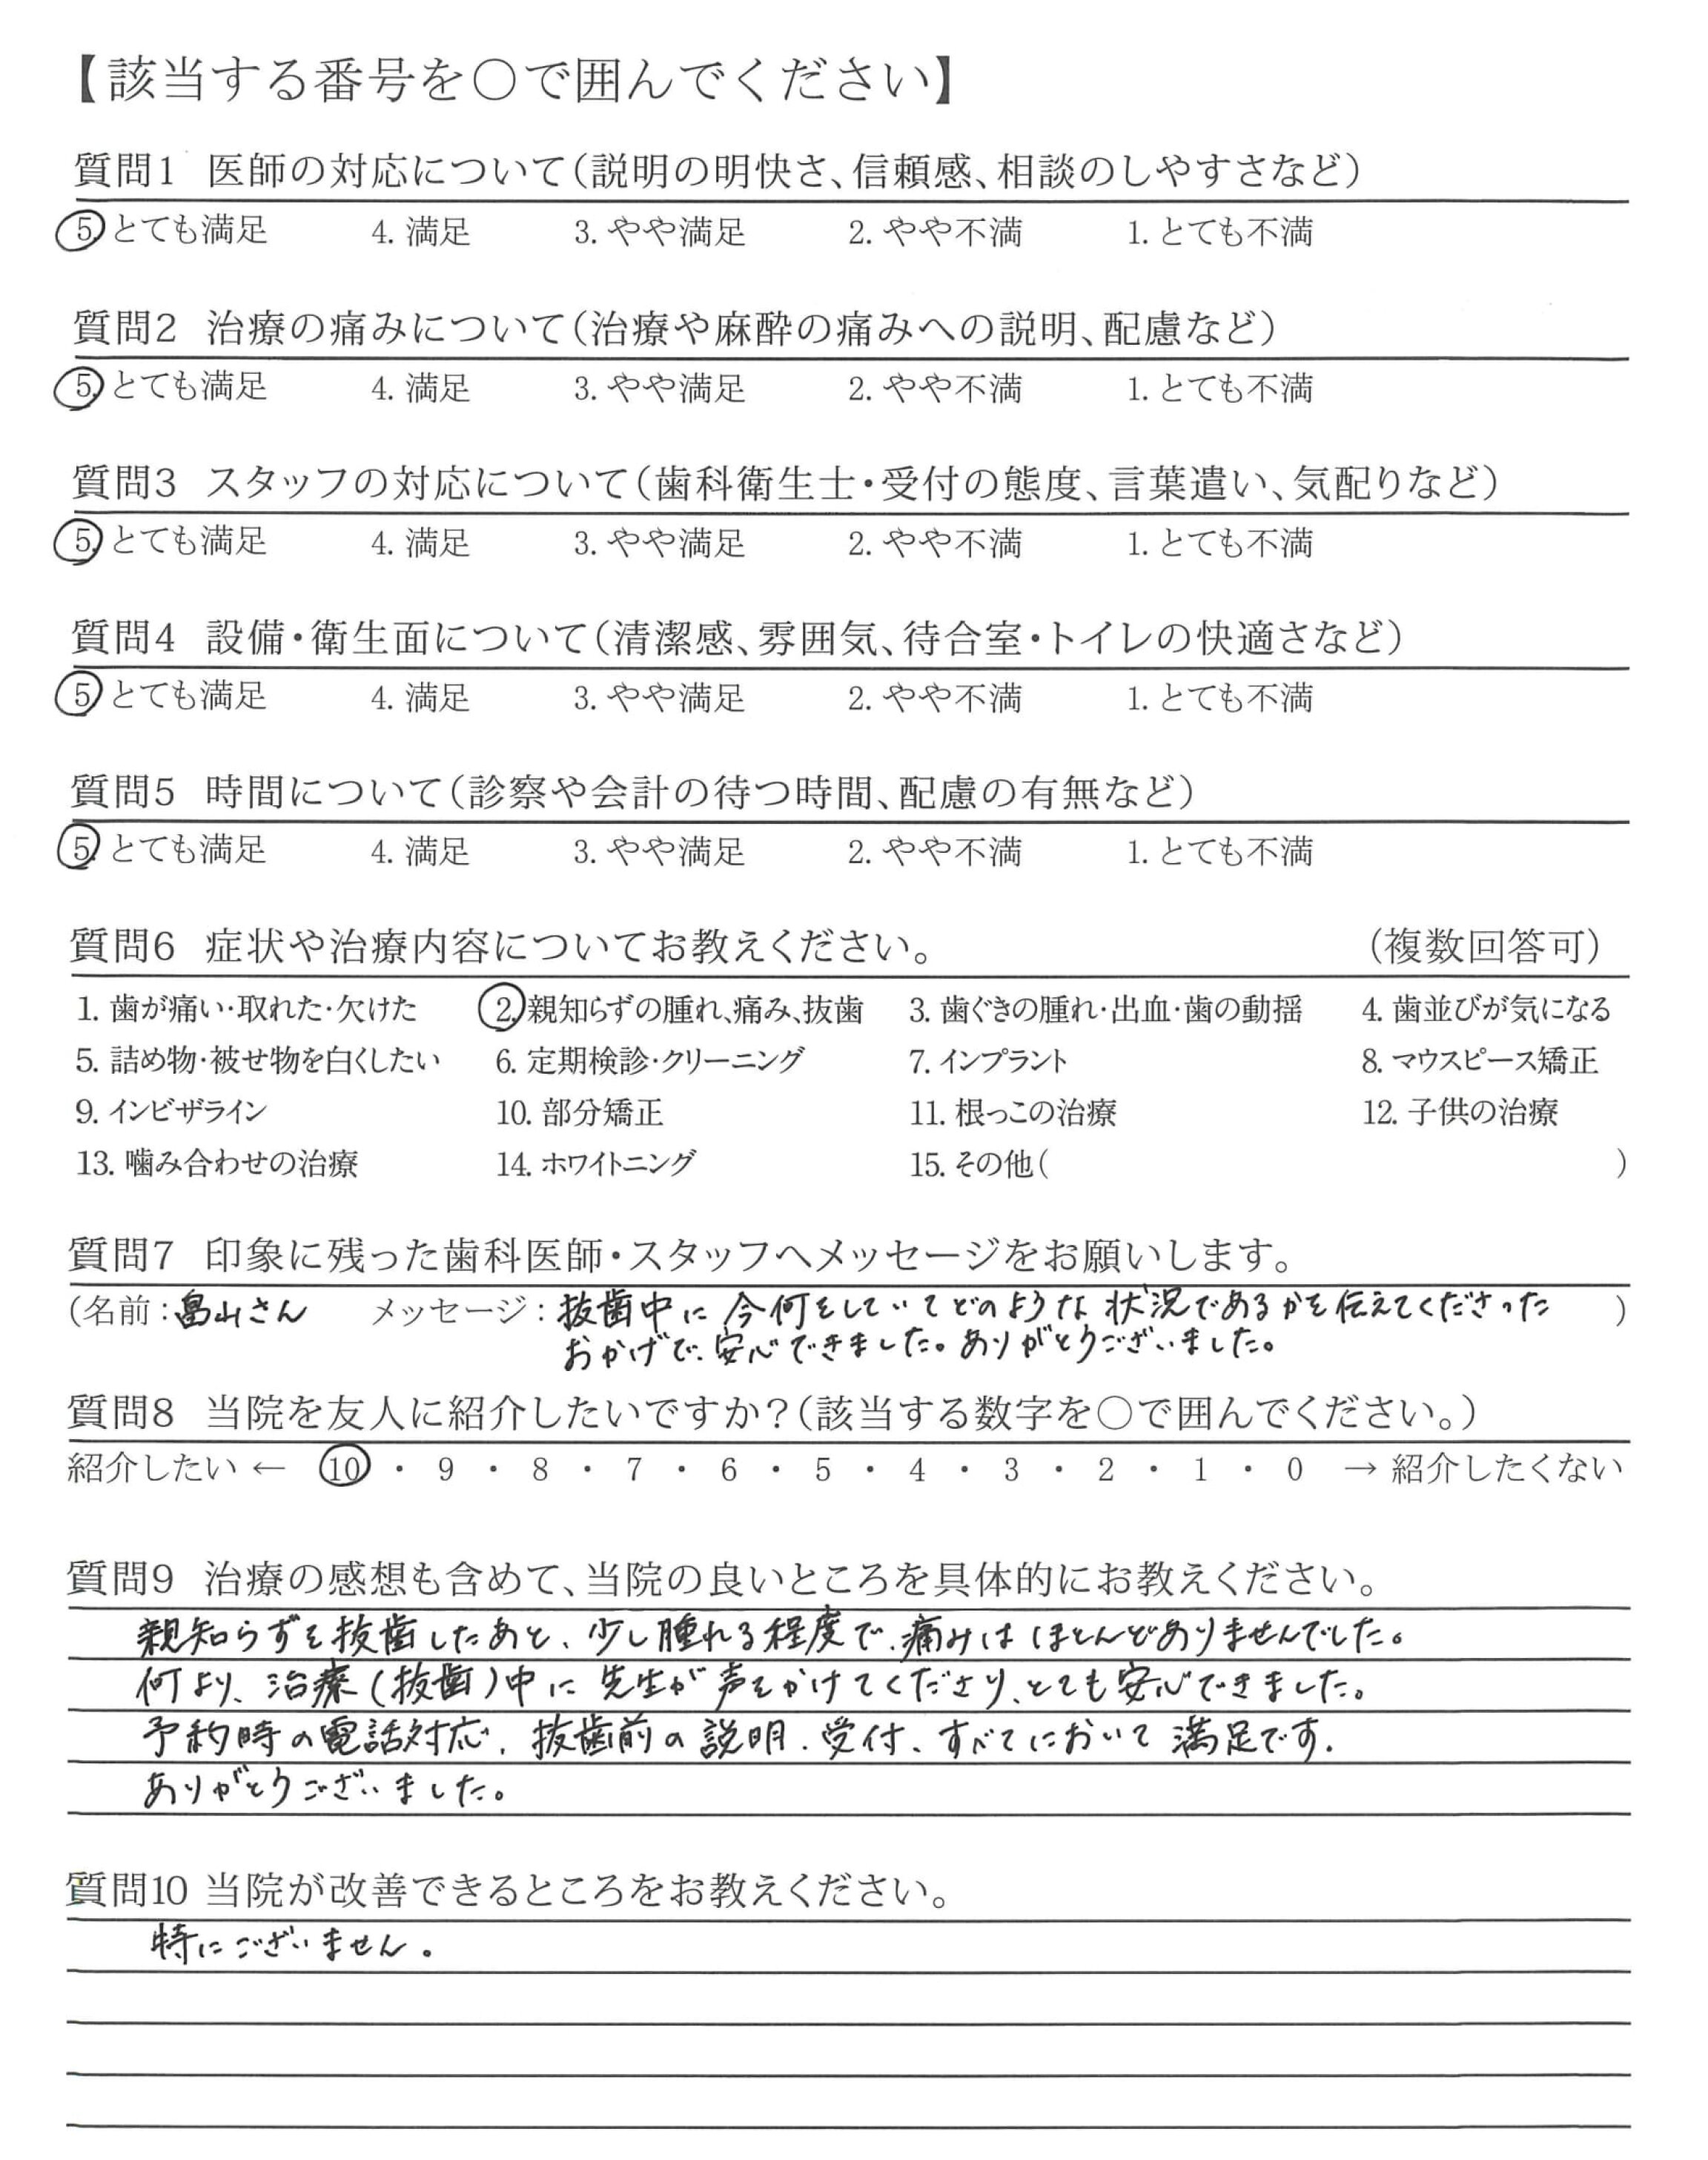 【該当する番号を○で囲んでください】
質問1 医師の対応について(説明の明快さ、信頼感、相談のしやすさなど)
5. とても満足 4. 満足 3. やや満足 2. やや不満 1. とても不満
質問2 治療の痛みについて(治療や麻酔の痛みへの説明、配慮など)
5. とても満足 4. 満足 3. やや満足 2. やや不満 1. とても不満
質問3 スタッフの対応について(歯科衛生士・受付の態度、言葉遣い、気配りなど)
5. とても満足 4. 満足 3. やや満足 2. やや不満 1. とても不満
質問4 設備・衛生面について(清潔感、雰囲気、待合室・トイレの快適さなど)
5. とても満足 4. 満足 3. やや満足 2. やや不満 1. とても不満
質問5 時間について(診察や会計の待つ時間、配慮の有無など)
5. とても満足 4. 満足 3. やや満足 2. やや不満 1. とても不満
質問6 症状や治療内容についてお教えください。 (複数回答可)
1. 歯が痛い・取れた・欠けた 2. 親知らずの腫れ、痛み、抜歯 3. 歯ぐきの腫れ・出血・歯の動揺 4. 歯並びが気になる
5. 詰め物・被せ物を白くしたい 6. 定期検診・クリーニング 7. インプラント 8. マウスピース矯正
9. インビザライン 10. 部分矯正 11. 根っこの治療 12. 子供の治療
13. 噛み合わせの治療 14. ホワイトニング 15. その他( )
質問7 印象に残った歯科医師・スタッフへメッセージをお願いします。
(名前：畠山さん メッセージ：抜歯中に今何をしていてどのような状況であるかを伝えてくださった )
おかげで、安心できました。ありがとうございました。
質問8 当院を友人に紹介したいですか?(該当する数字を○で囲んでください。)
紹介したい ← 10 ・ 9 ・ 8 ・ 7 ・ 6 ・ 5 ・ 4 ・ 3 ・ 2 ・ 1 ・ 0 → 紹介したくない
質問9 治療の感想も含めて、当院の良いところを具体的にお教えください。
親知らずを抜歯したあと、少し腫れる程度で、痛みはほとんどありませんでした。
何より、治療(抜歯)中に先生が声をかけてくださり、とても安心できました。
予約時の電話対応、抜歯前の説明、受付、すべてにおいて満足です。
ありがとうございました。
質問10 当院が改善できるところをお教えください。
特にございません。